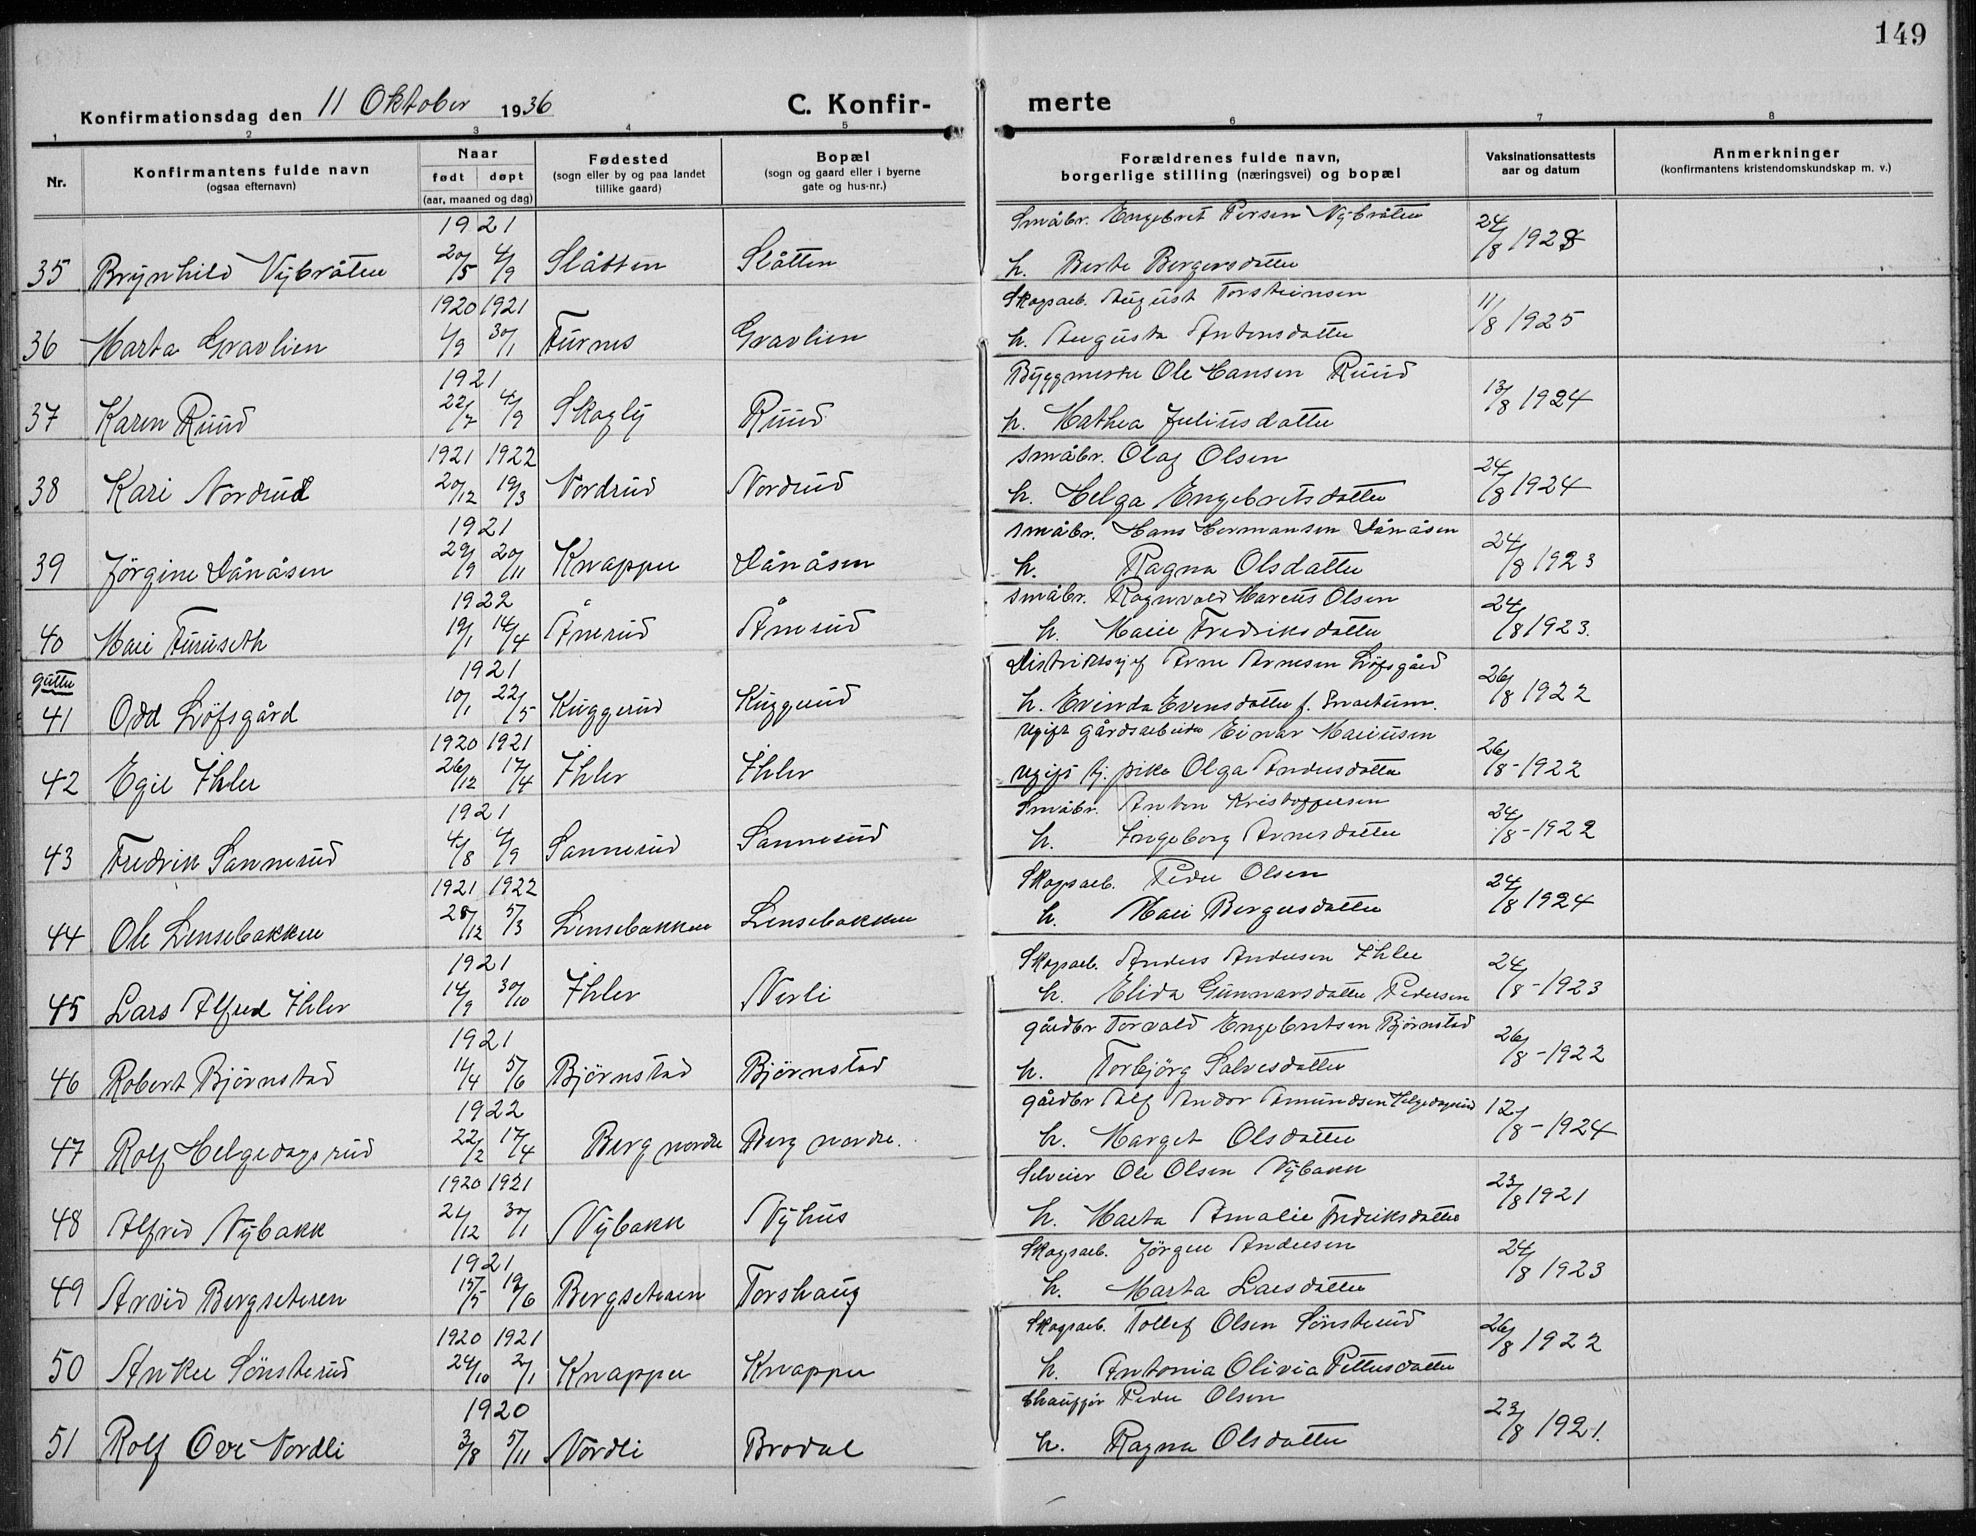 149
Konfirmationsdag den 11 Oktober 1936 C. Konfir- merte
1 2 3 4 5 6 7 8
Nr. Konfirmantens fulde navn (ogsaa efternavn) Naar født døpt (aar, maaned og dag) Fødested (sogn eller by og paa landet tillike gaard) Bopæl (sogn og gaard eller i byerne gate og hus-nr.) Forældrenes fulde navn, borgerlige stilling (næringsvei) og bopæl Vaksinationsattests aar og datum Anmerkninger (konfirmantens kristendomskundskap m. v.)
1921 Småbr. Engebret Persen Nybråten
35 Brynhild Nybråten 20/5 4/9 Slåtten Slåtten h. Berte Bergersdatter 24/8 1928
1920 1921 Skogsarb. August Torsteinsen
36 Marta Gravlien 4/9 30/1 Furnes Gravlien h. Augusta Antonsdatter 11/8 1925
1921 Byggmester Ole Hansen Ruud
37 Karen Ruud 22/7 4/9 Skogly Ruud h. Mathea Juliusdatter 13/8 1924
1921 1922 småbr. Olaf Olsen
38 Kari Nordrud 20/12 19/3 Nordrud Nordrud h. Helga Engebretsdatter 24/8 1924
1921 småbr. Hans Hermansen Dånåsen
39 Jørgine Dånåsen 29/9 20/11 Knapper Dånåsen h. Ragna Olsdatter 24/8 1923
1922 småbr. Ragnvald Marcus Olsen
40 Mari Furuseth 19/1 14/4 Ånerud Ånerud h. Marie Fredriksdatter 24/8 1923.
gutter 1921 Distriktssjef Arne Arnesen Løfsgård
41 Odd Løfsgård 10/1 22/5 Kuggerud Kuggerud h. Evinda Evensdatter f. 26/8 1922
1920 1921 ugift gårdsarbeider Einar Mariusen
42 Egil Ihler 26/12 17/4 Ihler Ihler ugift tj. pike Olga Andersdatter 26/8 - 1922
1921 Småbr. Anton Kristoffersen
43 Fredrik Sannerud 4/8 4/9 Sannerud Sannerud h. Ingeborg Arnesdatter 24/8 - 1922
1921 1922 Skogsarb. Peder Olsen
44 Ole Lensebakken 28/12 5/3 Lensebakken Lensebakken h. Mari Bergersdatter 24/8 1924
1921 Skogsarb. Anders Andersen Ihler
45 Lars Alfred Ihler 14/9 30/10 Ihler Nerli h. Elida Gunnarsdatter Pedersen 24/8 - 1923
1921 gårdbr Torvald Engebretsen Bjørnstad
46 Robert Bjørnstad 11/4 5/6 Bjørnstad Bjørnstad h. Torbjørg Salvesdatter 26/8 - 1922
1922 gårdbr Alf Andor Amundsen Helgedagsrud
47 Rolf Helgedagsrud 22/2 17/4 Berg nordre Berg nordre. h. Marget Olsdatter 12/8 - 1924
1920 1921 Selveier Ole Olsen Nybakk
48 Alfred Nybakk 21/12 30/1 Nybakk Nyhus h. Marta Amalie Fredriksdatter 23/8 1921
1921 Skogsarb. Jørgen Andersen
49 Arvid Bergseteren 15/5 19/6 Bergseteren Torshaug h. Marta Larsdatter 24/8 1923
1920 1921 Skogsarb. Tollef Olsen Sønsterud
50 Anker Sønsterud 24/10 2/1 Knapper Knapper h. Antonia Olivia Pettersdatter 26/8 1922
1920 Chauffør Peder Olsen
51 Rolf Ove Nordli 3/8 5/11 Nordli Brodal h. Ragna Olsdatter 23/8 1921.